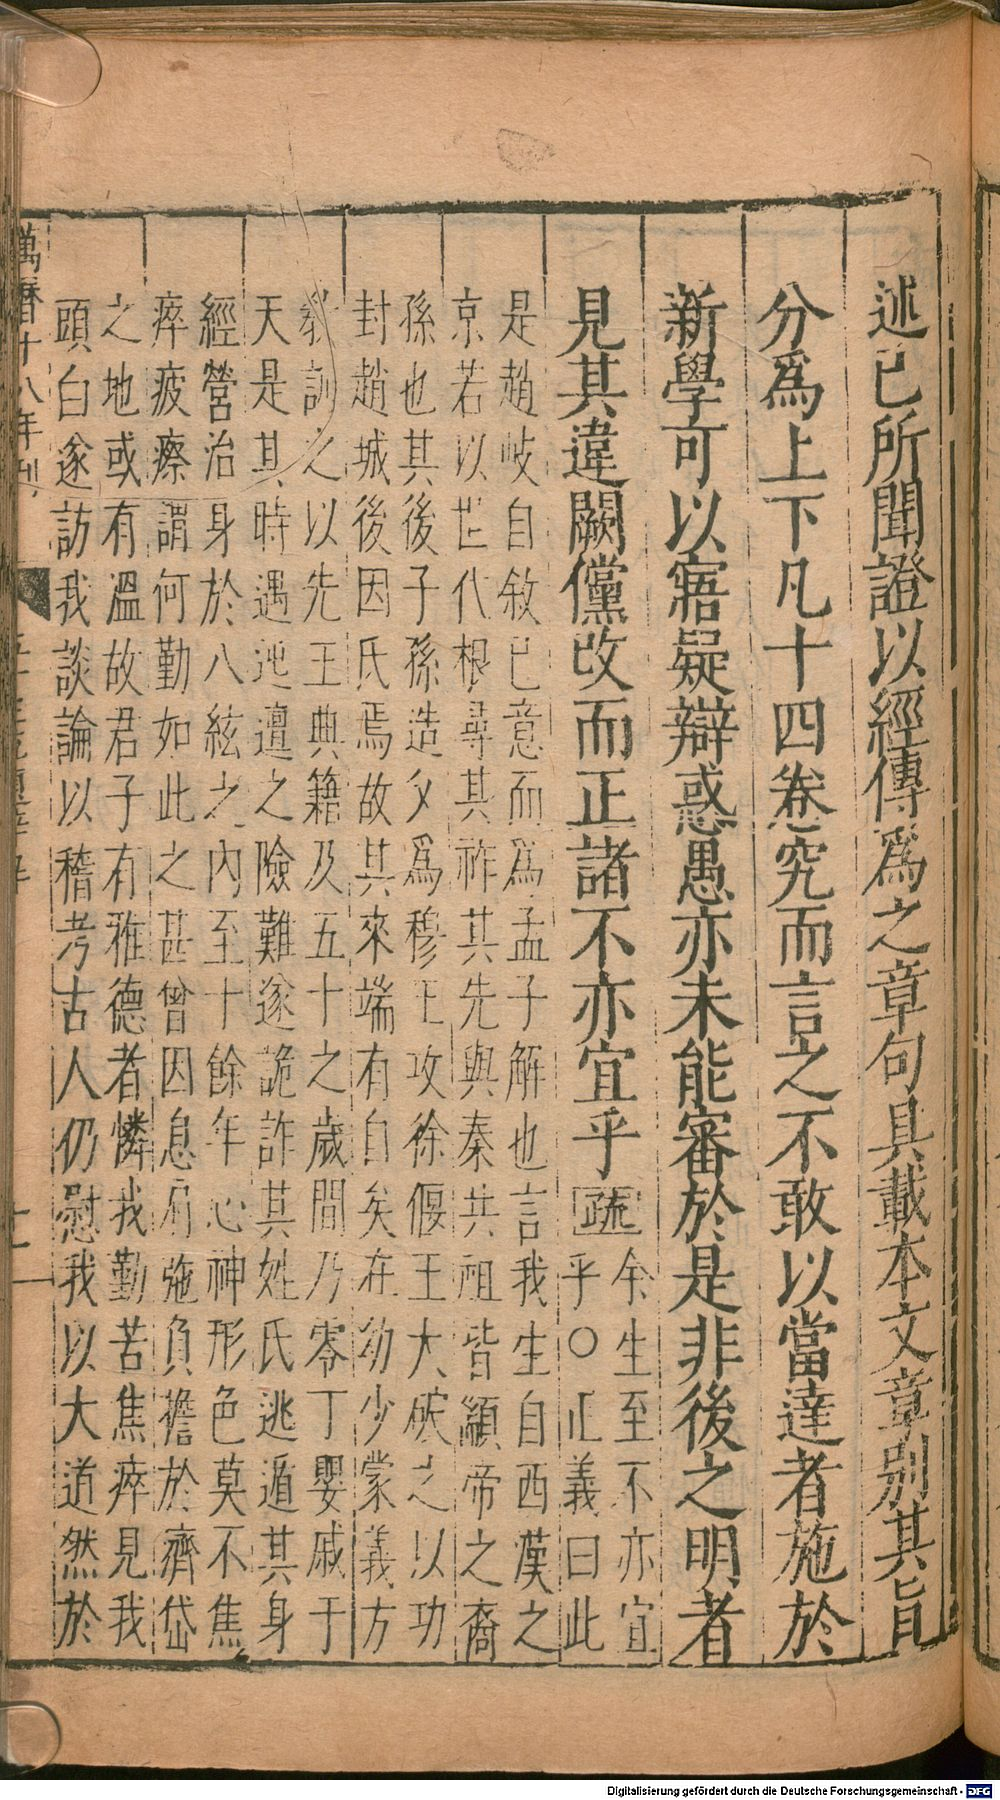 述已所聞證以經傳爲之章句具載本文章別其旨
分爲上下凡十四卷究而言之不敢以當達者施於
新學可以寤疑辯惑愚亦未能審於是非後之明者
見其違闕儻改而正諸不亦宜乎疏余生至不亦宜
乎○正義曰此
是趙岐自敘已意而爲孟子解也言我生自西漢之
京若以世代根尋其祚其先與秦共祖皆顓帝之裔
孫也其後子孫造父爲穆王攻徐偃王大破之以功
封趙城後因氏焉故其來端有自矣在幼少蒙義方
教訓之以先王典籍及五十之歲間乃零丁嬰戚于
天是其時遇迍邅之險難遂詭詐其姓氏逃遁其身
經營治身於八紘之內至十餘年心神形色莫不焦
瘁疲瘵謂何勤如此之甚曾因息肩弛負擔於濟岱
之地或有溫故君子有雅德者憐我勤苦焦瘁見我
頭白遂訪我談論以稽考古人仍慰我以大道然於
萬曆十八年刊
十一
Digitalisierung gefördert durch die Deutsche Forschungsgemeinschaft - DFG